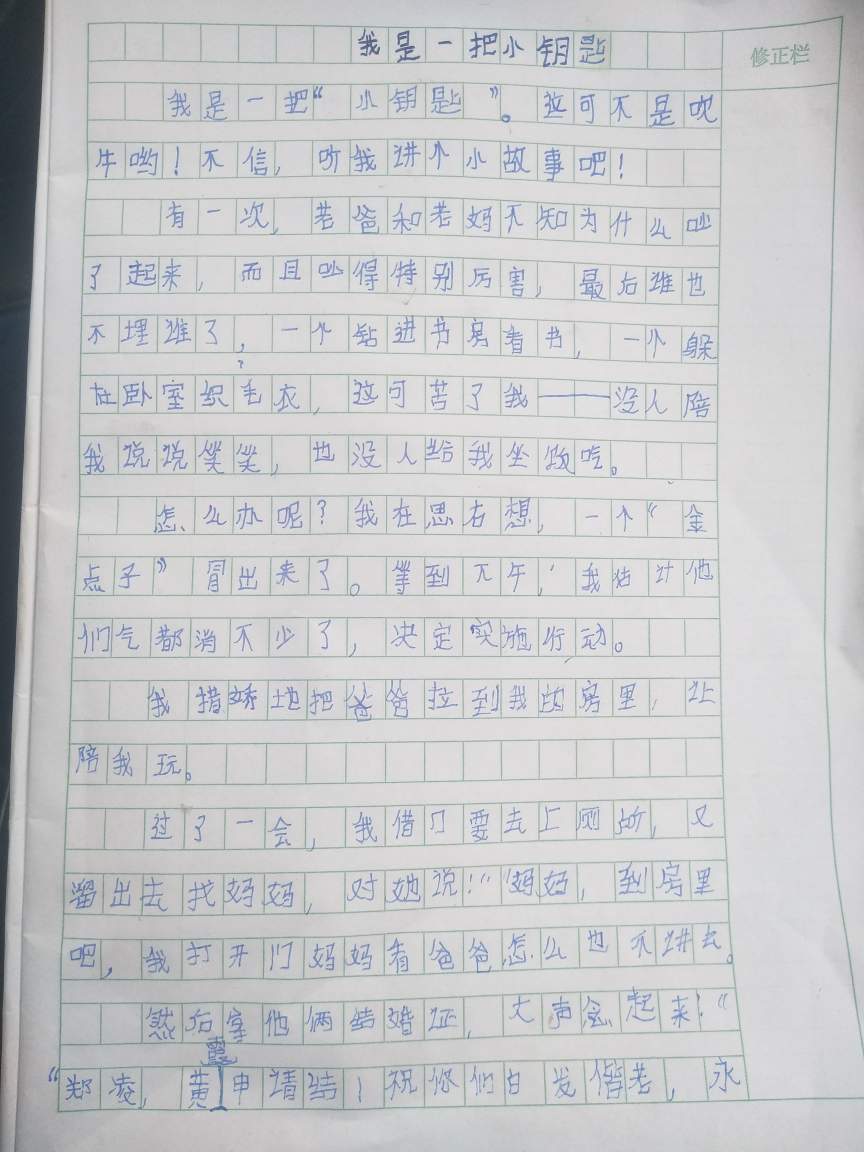 我是一把小钥匙
修正栏
我是一把“小钥匙”。这可不是吹
牛哟！不信，听我讲个小故事吧！
有一次，老爸和老妈不知为什么吵
了起来，而且吵得特别厉害，最后谁也
不埋谁了，一个钻进书房看书，一个躲
在卧室织毛衣，这可苦了我——没人陪
我说说笑笑，也没人给我坐饭吃。
怎么办呢？我在思右想，一个“金
点子”冒出来了。等到下午，我估计他
们气都消不少了，决定实施行动。
我猎娇地把爸爸拉到我的房里，让
陪我玩。
过了一会，我借口要去上厕所，又
溜出去找妈妈，对她说！“妈妈，到房里
吧，我打开门妈妈看爸爸怎么也不讲去。
然后拿他俩结婚证，大声念起来！“
“郑凌，黄霞申请结！祝你们白发偕老，永